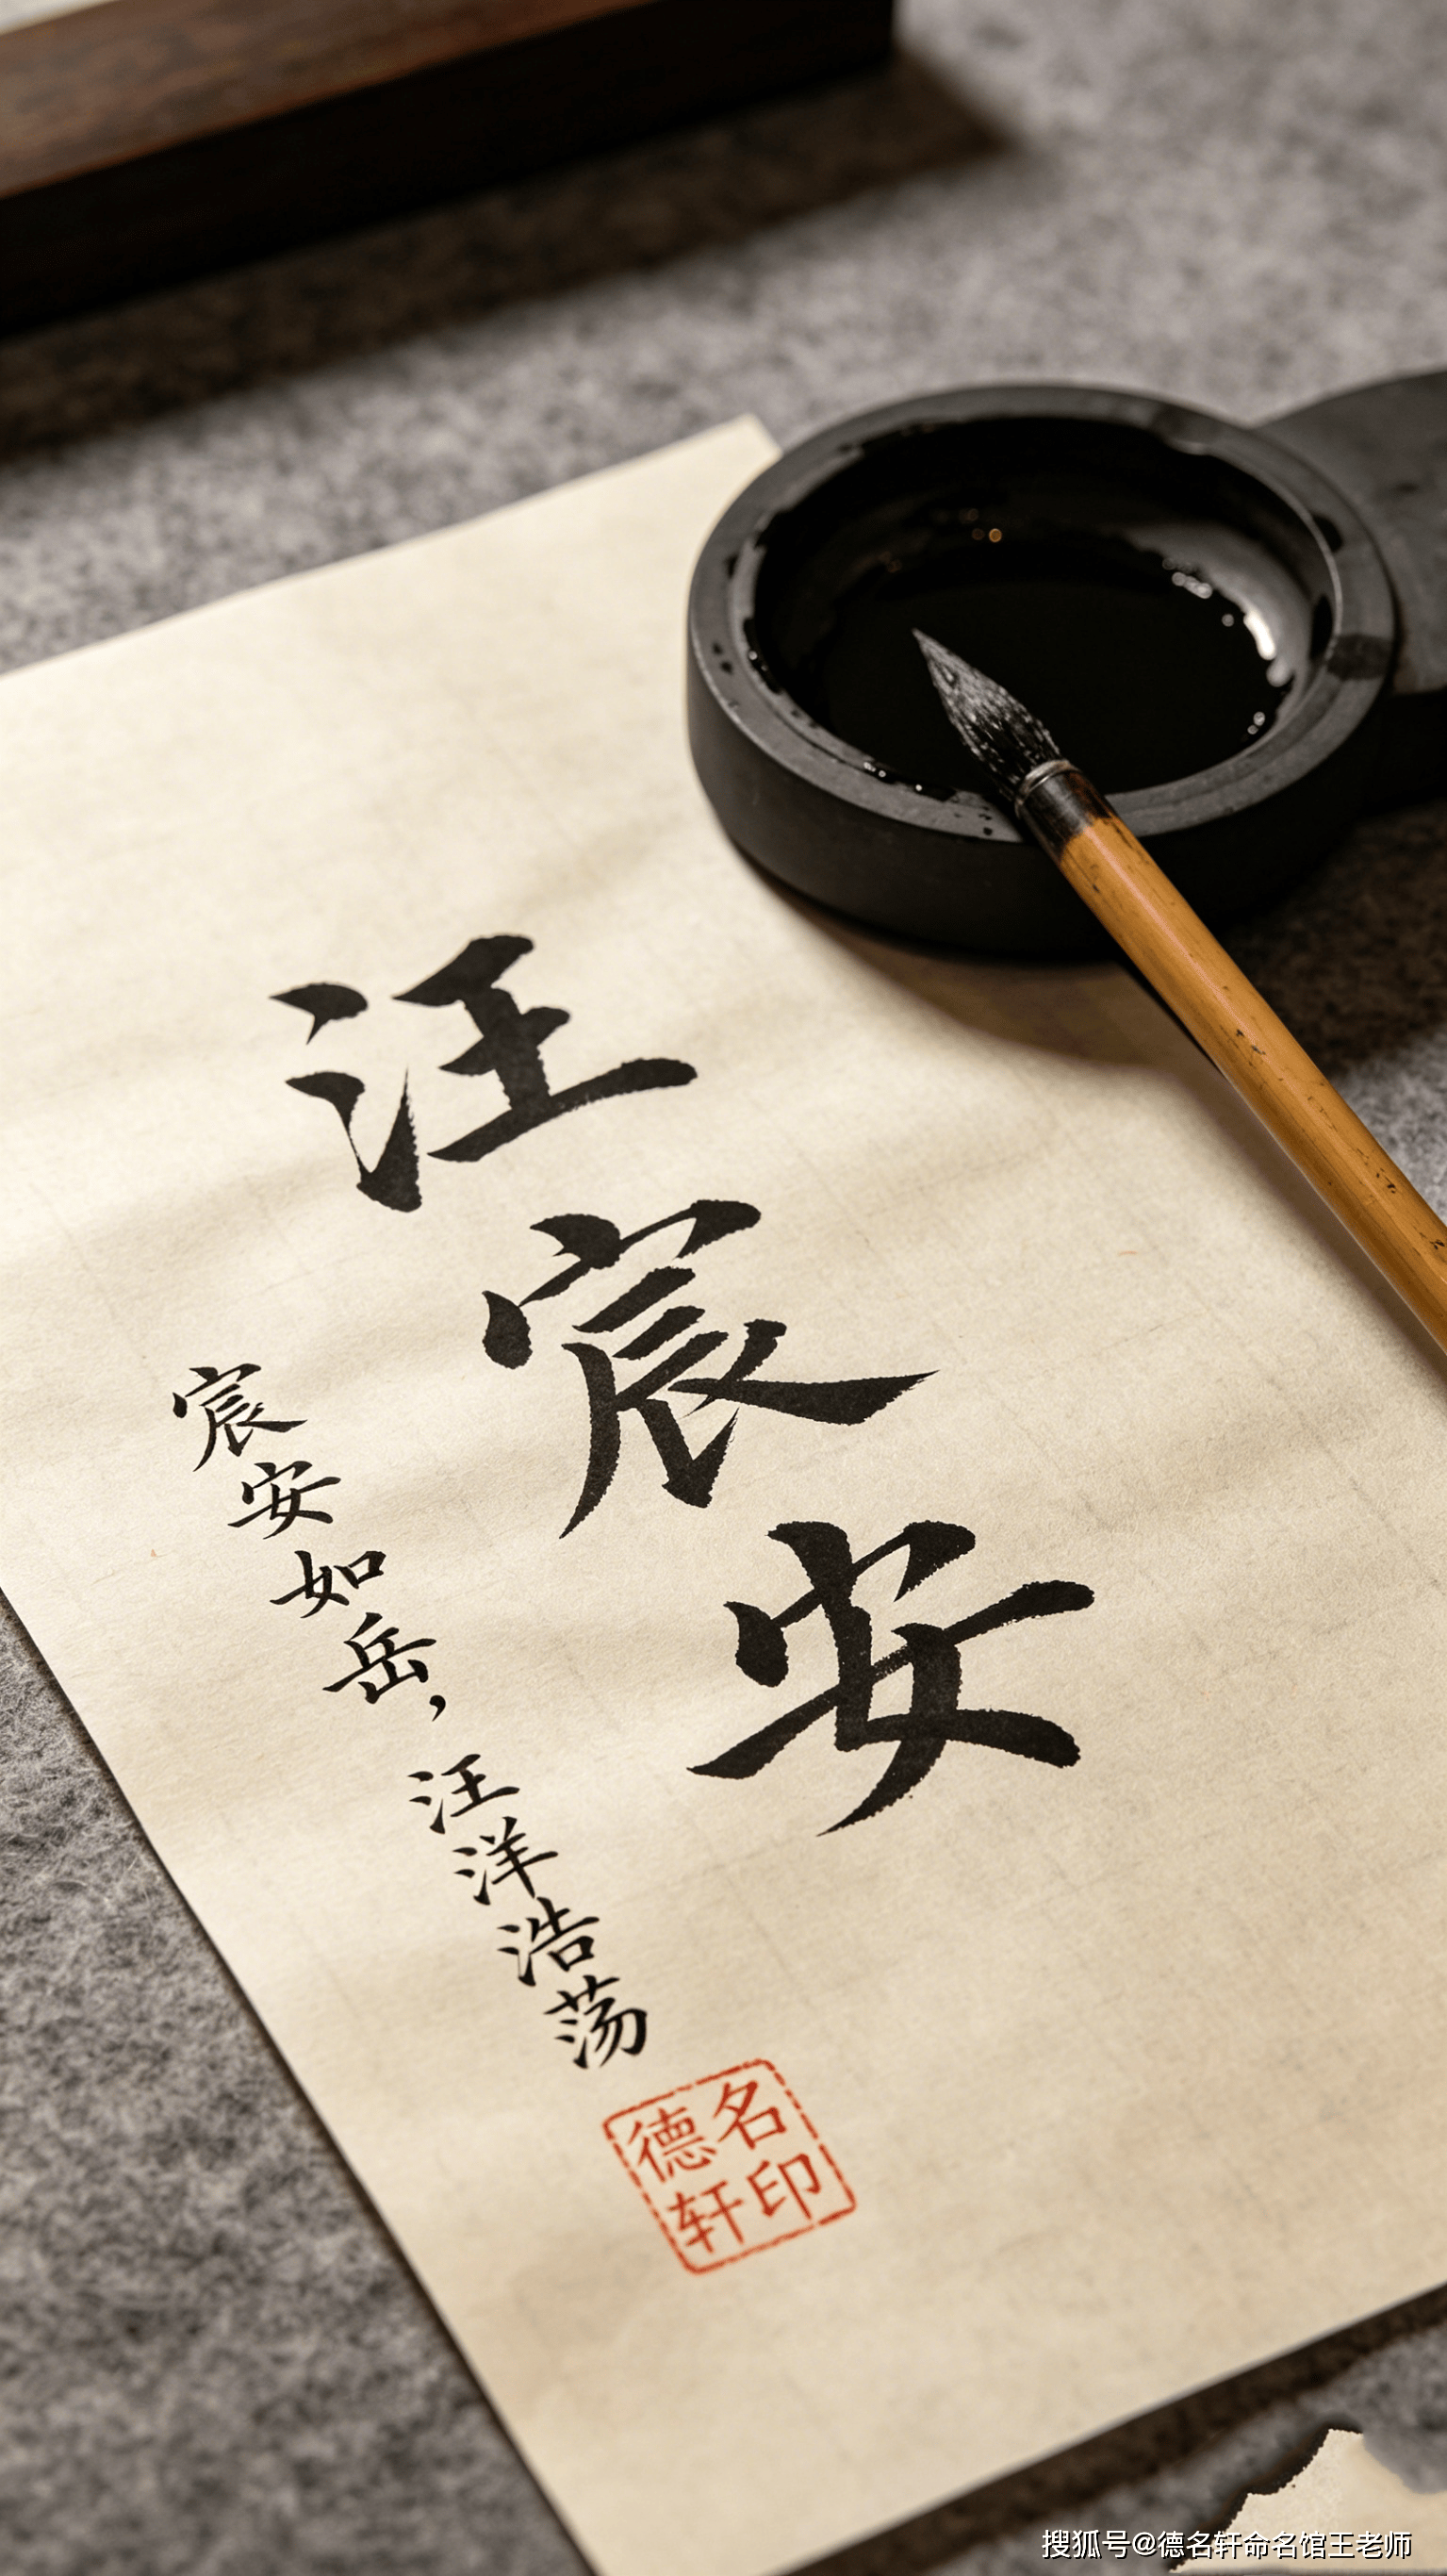 汪宸安
宸安如岳，汪洋浩荡
德名
轩印
搜狐号@德名轩命名馆王老师